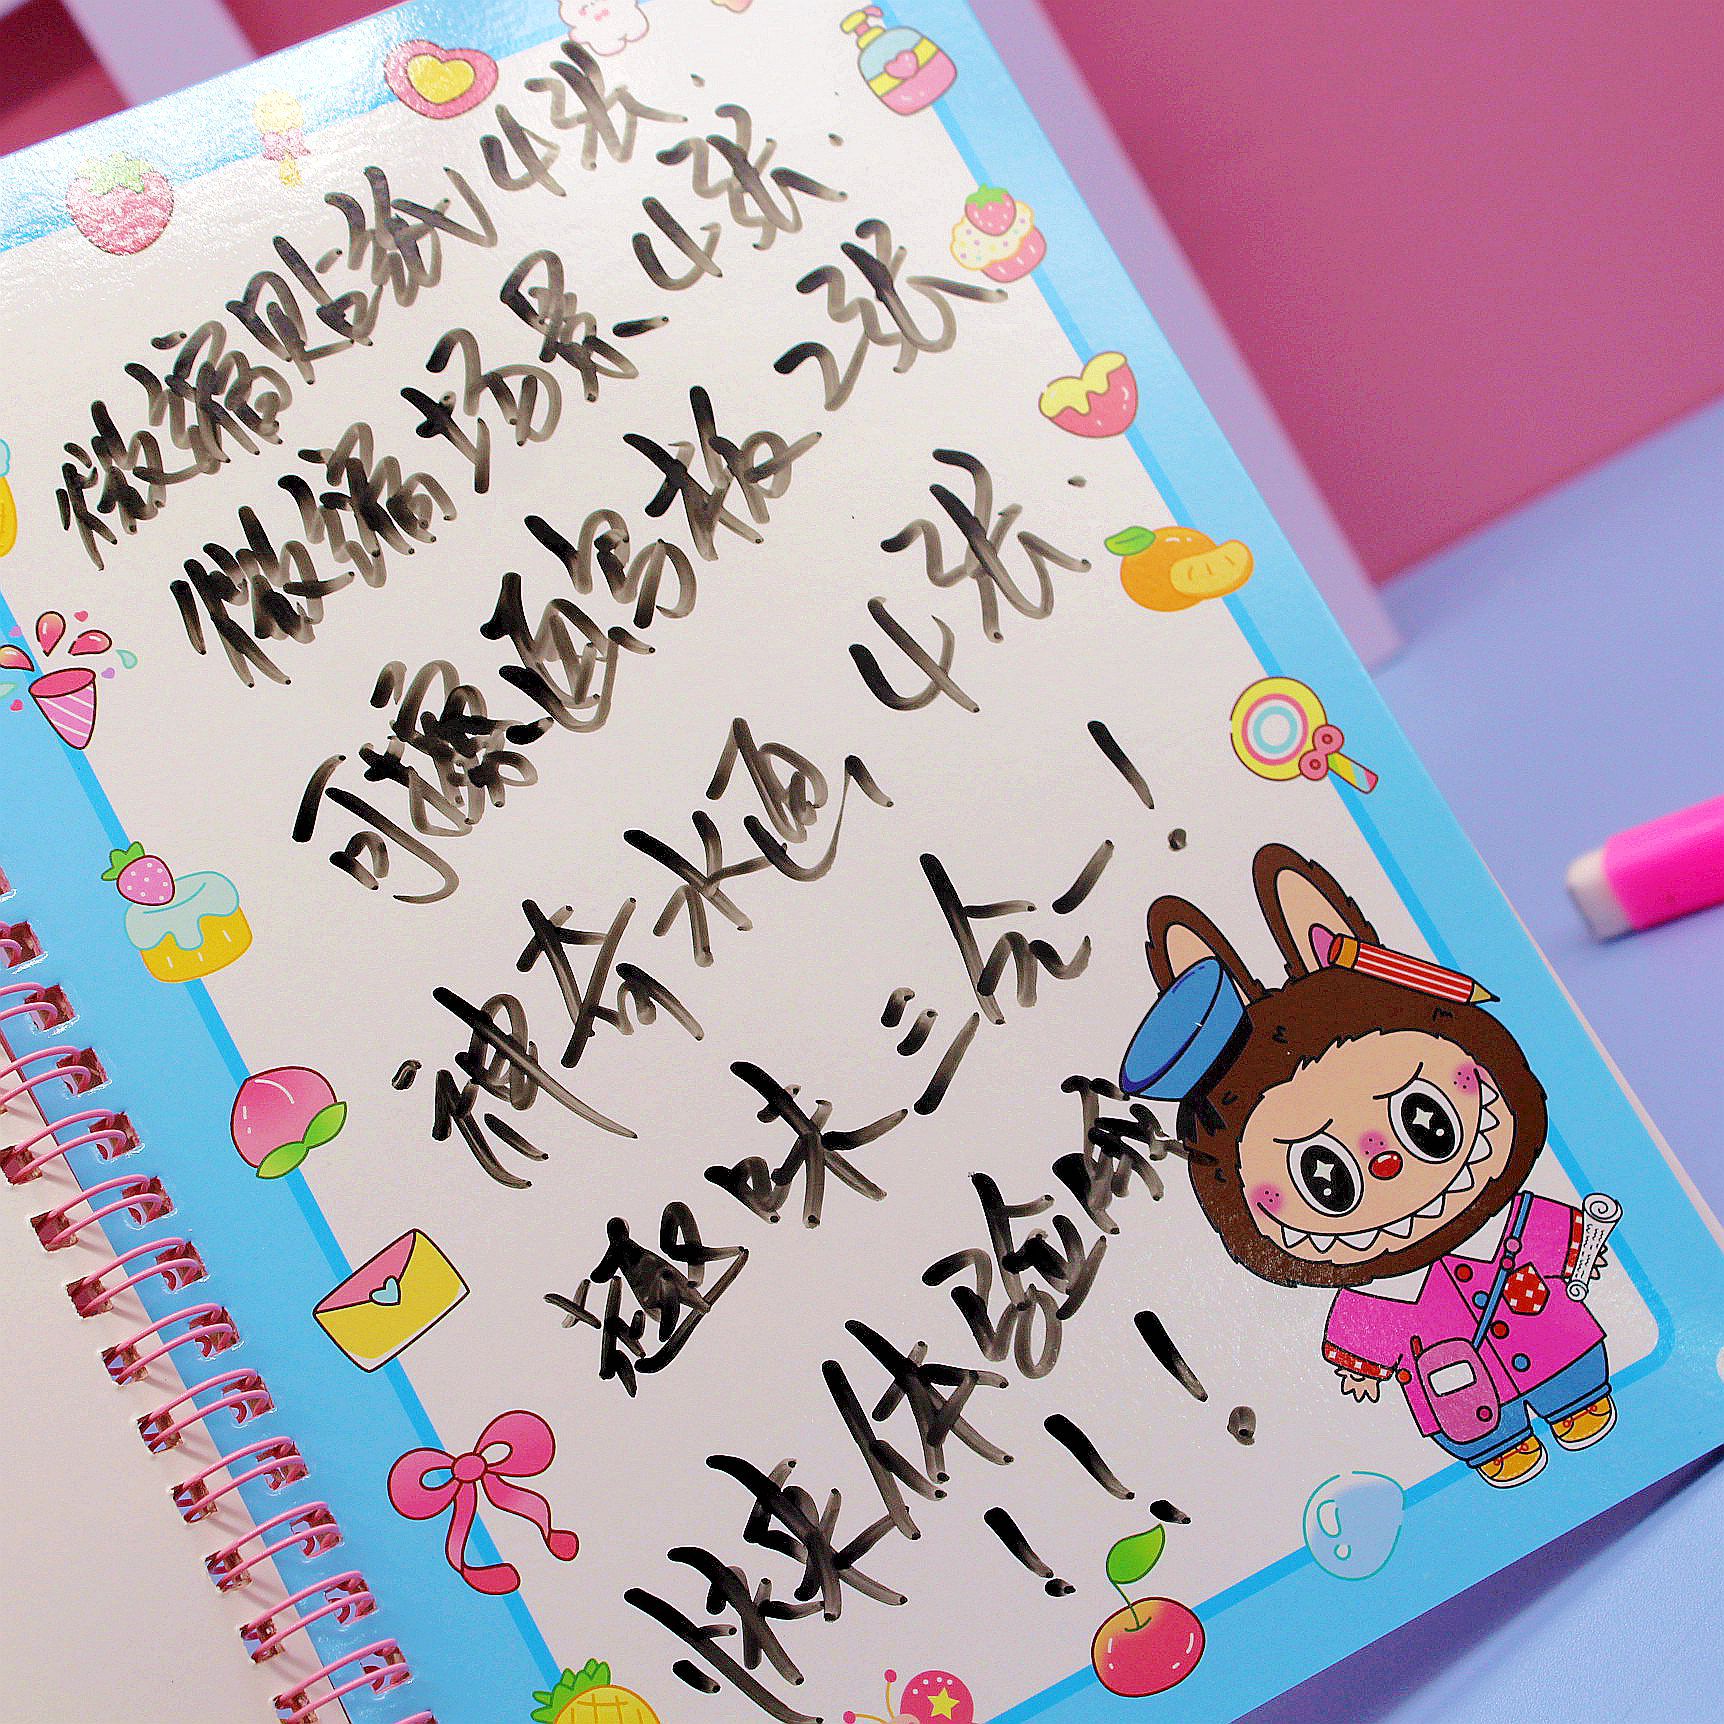 微缩贴纸4张.
微缩场景、4张.
可擦画写板2张
神奇水画 4张.
趣味三合一!
快来体验哦
!!!